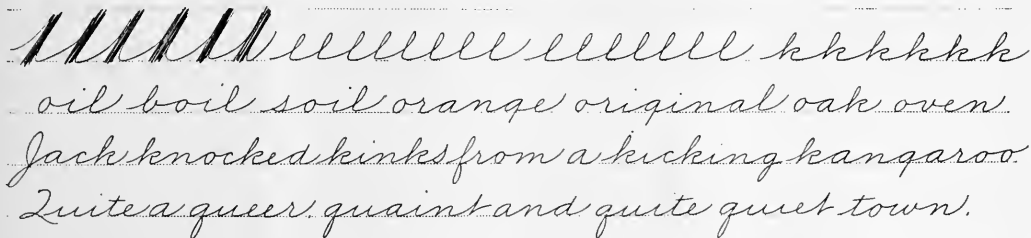 llllllllll lllllll kkkkkk
oil boil soil orange original oak oven
Jack knocked kinks from a kicking kangaroo.
Quite a queer, quaint and quite quiet town.